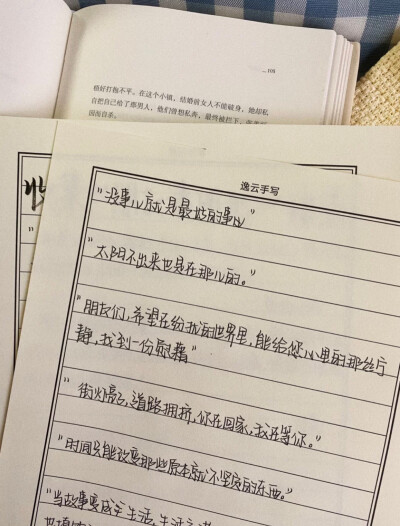 108
稍好打抱不平。在这个小镇，结婚前女人不能破身，她却私
自把自己给了那男人，他们曾想私奔，最终被拦下，
因而自杀。
逸云手写
"没事儿就是最好的事儿"
"太阳不出来也是在那儿的。"
"朋友们，希望在纷扰的世界里，能给您心里的那丝宁
静，找到一份慰藉"
"街灯亮了，道路拥挤，你在回家，我在等你。"
"时间只能改变那些原本就不坚定的东西。"
"当故事变成生活，生活